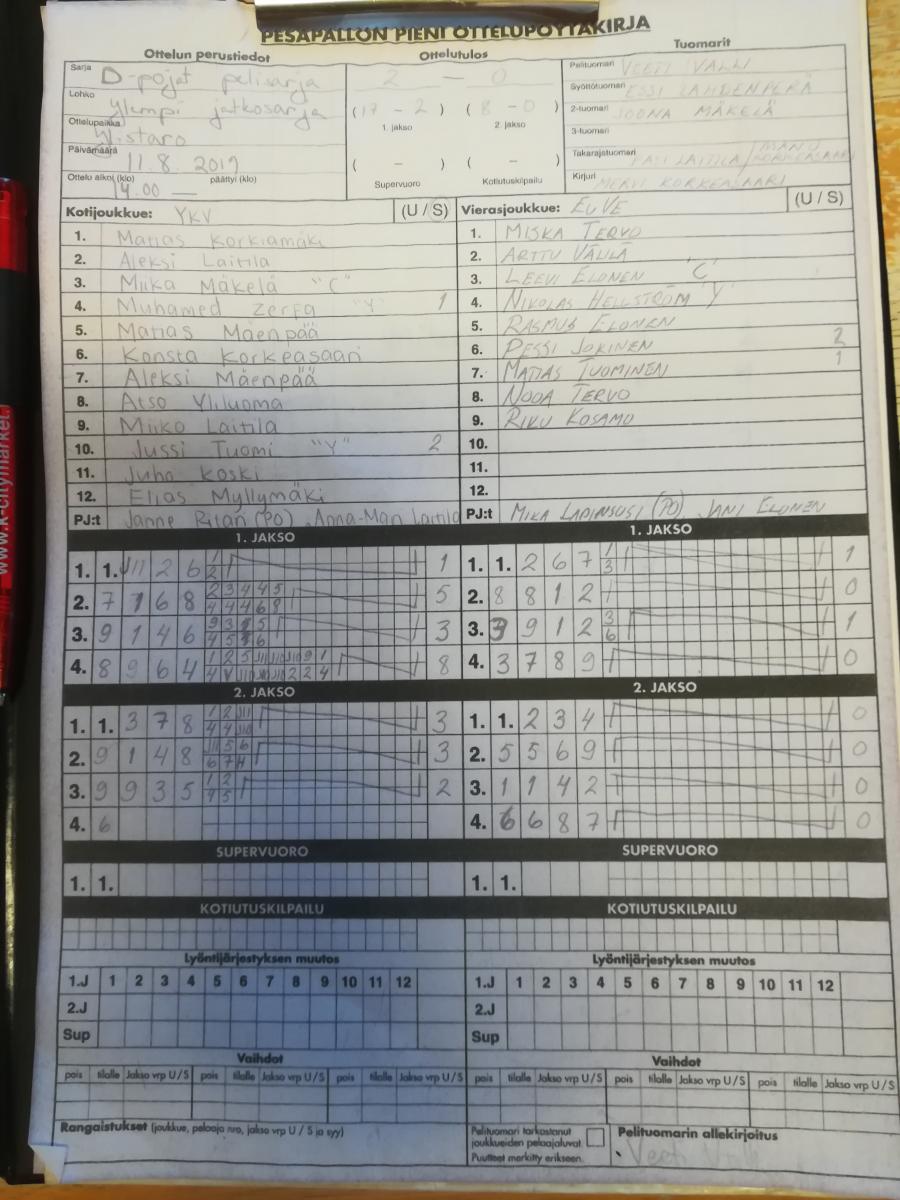 PESÄPALLON PIENI OTTELUPÖYTÄKIRJA
Ottelun perustiedot
Ottelutulos
Tuomarit
Sarja D-pojat pelisarja
Lohko Ylempi jatkosarja
Ottelupaikka Ylistaro
Päivämäärä 11.8. 2019
Ottelu alkoi (klo) 14.00 — päättyi (klo)
2 — 0
(17 – 2) (8 – 0)
1. jakso 2. jakso
( – ) ( – )
Supervuoro Kotiutuskilpailu
Pelituomari VEETI VALLI
Syöttötuomari ESSI LAHDENPERÄ
2-tuomari JOONA MÄKELÄ
3-tuomari
Takarajatuomari PASI LAITILA / MANU KORKEASAARI
Kirjuri MERVI KORKEASAARI
Kotijoukkue: YKV (U / S)
1. Matias Korkiamäki
2. Aleksi Laitila
3. Miika Mäkelä "C"
4. Muhamed Zerfa "Y" 1
5. Matias Mäenpää
6. Konsta Korkeasaari
7. Aleksi Mäenpää
8. Atso Yliluoma
9. Miiko Laitila
10. Jussi Tuomi "Y" 2
11. Juho Koski
12. Elias Myllymäki
PJ:t Janne Ritari (PO), Anna-Mari Laitila
Vierasjoukkue: EuVE (U / S)
1. MISKA TERVO
2. ARTTU VÄLILÄ
3. LEEVI ELONEN "C"
4. NIKOLAS HELLSTRÖM "Y"
5. RASMUS ELONEN
6. PESSI JOKINEN 2
7. MATIAS TUOMINEN 1
8. NOOA TERVO
9. RIKU KOSAMO
10.
11.
12.
PJ:t MIKA LAPINSUSI (PO) JANI ELONEN
1. JAKSO
1. 1. J11 2 6 1 2 1
2. 7 1 6 8 2 3 4 4 5 4 4 4 6 8 5
3. 9 1 4 6 3
4. 8 9 6 4 8
2. JAKSO
1. 1. 3 7 8 1 2 J11 4 4 J10 3
2. 9 1 4 8 J11 5 6 3
3. 9 9 3 5 1 2 4 5 2
4. 6
SUPERVUORO
1. 1.
KOTIUTUSKILPAILU
Lyöntijärjestyksen muutos
1.J 1 2 3 4 5 6 7 8 9 10 11 12
2.J
Sup
Vaihdot
pois tilalle Jakso vrp U/S pois tilalle Jakso vrp U/S pois tilalle Jakso vrp U/S
1. JAKSO
1. 1. 2 6 7 1 3 1
2. 8 8 1 2 0
3. 3 9 1 2 3 6 1
4. 3 7 8 9 0
2. JAKSO
1. 1. 2 3 4 0
2. 5 5 6 9 0
3. 1 1 4 2 0
4. 6 6 8 7 0
SUPERVUORO
1. 1.
KOTIUTUSKILPAILU
Lyöntijärjestyksen muutos
1.J 1 2 3 4 5 6 7 8 9 10 11 12
2.J
Sup
Vaihdot
pois tilalle Jakso vrp U/S pois tilalle Jakso vrp U/S pois tilalle Jakso vrp U/S
Rangaistukset (joukkue, pelaaja nro, jakso vrp U / S ja syy)
Pelituomari tarkastanut
joukkueiden pelaajaluvat.
Puutteet merkitty erikseen.
Pelituomarin allekirjoitus
Veeti Valli
www.k-citymarket.